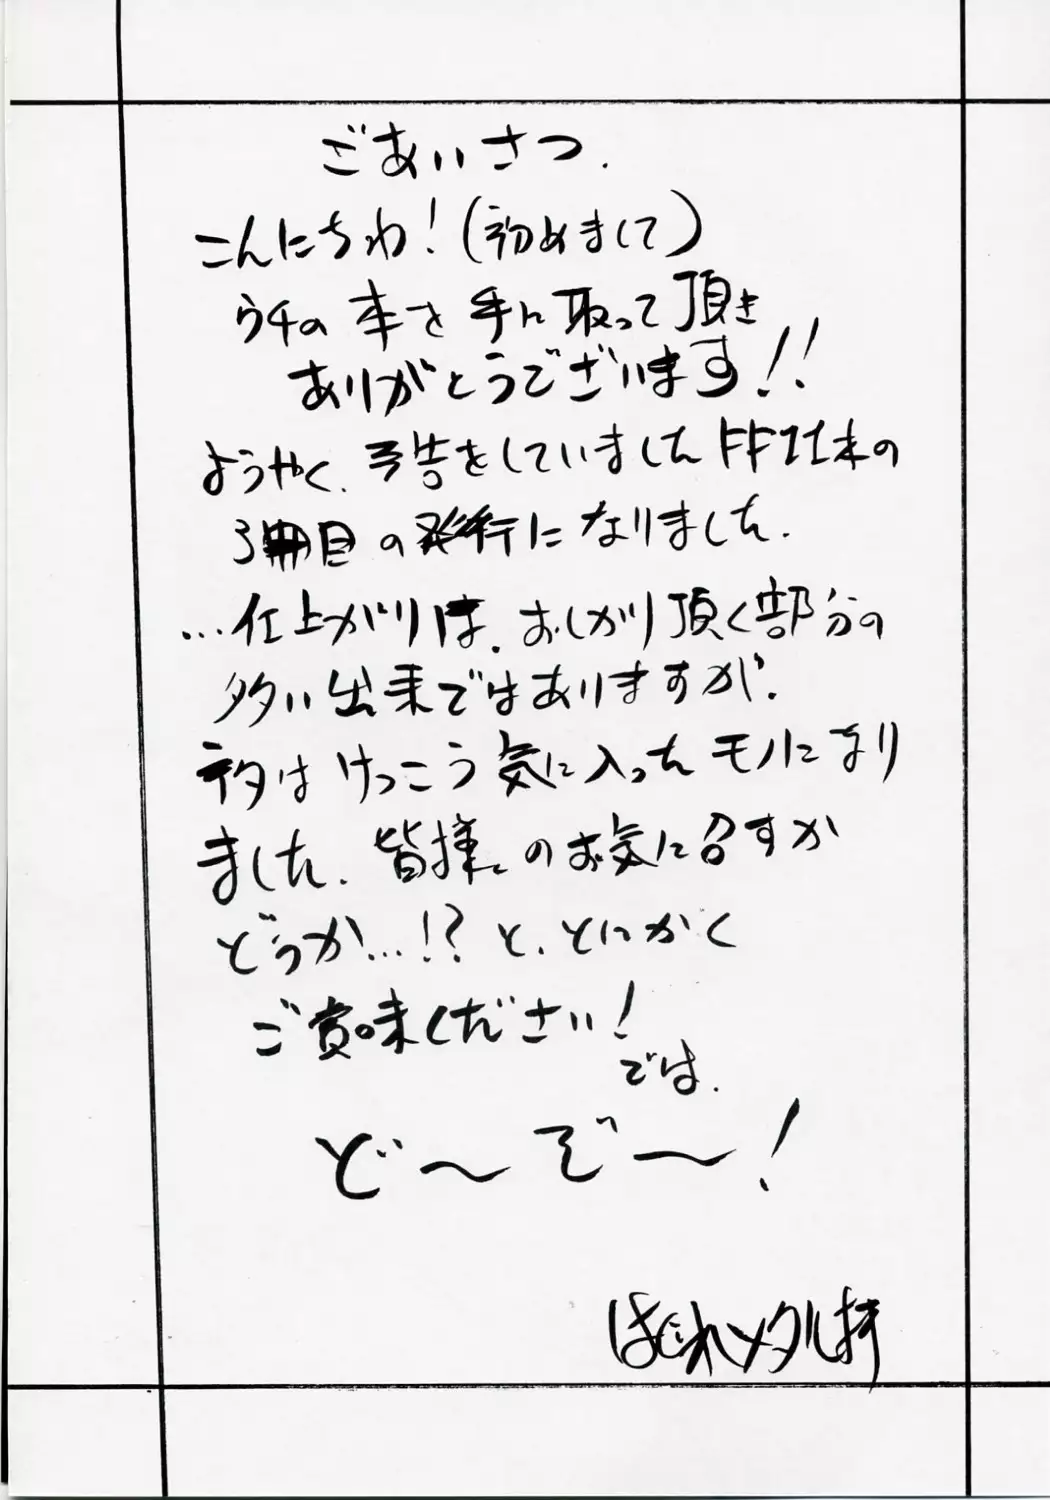 ごあいさつ.
こんにちわ!(初めまして)
ウチの本を手に取って頂き
ありがとうございます!!
ようやく、予告をしていましたFFXI本の
3冊目の発行になりました.
…仕上がりは、おしかり頂く部分の
多い出来ではありますが、
ネタはけっこう気に入ったモノになり
ました. 皆様のお気に召すか
どうか…!?と、とにかく
ご賞味ください!
では、
ど〜ぞ〜!
はぐれメタル